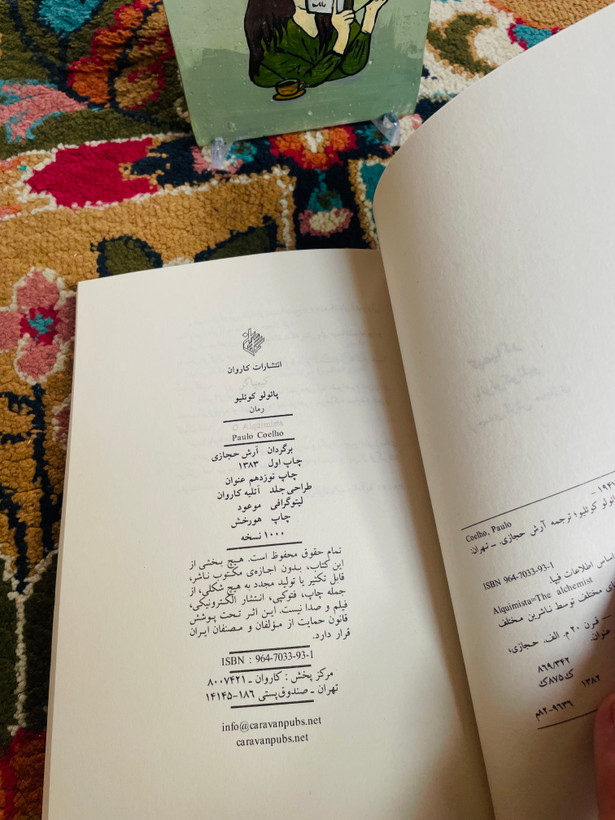 انتشارات کاروان
پائولو کوئلیو
رمان
O Alquimista
Paulo Coelho
برگردان آرش حجازی
چاپ اول ۱۳۸۳
چاپ نوزدهم عنوان
طراحی جلد آتلیه کاروان
لیتوگرافی موعود
چاپ هورخش
۱۰۰۰ نسخه
تمام حقوق محفوظ است. هیچ بخشی از
این کتاب، بدون اجازه‌ی مکتوب ناشر،
قابل تکثیر یا تولید مجدد به هیچ شکلی، از
جمله چاپ، فتوکپی، انتشار الکترونیکی،
فیلم و صدا نیست. این اثر تحت پوشش
قانون حمایت از مؤلفان و مصنفان ایران
قرار دارد.
ISBN : 964-7033-93-1
مرکز پخش : کاروان ـ ۸۰۰۷۴۲۱
تهران ـ صندوق پستی ۱۸۶-۱۴۱۴۵
info@caravanpubs.net
caravanpubs.net
Coelho, Paulo
ترجمه آرش حجازی. ـ تهران:
ISBN 964-7033-93-1
اساس اطلاعات فیپا.
Alquimista=The alchemist
ی مختلف توسط ناشرین مختلف
ـــ قرن ۲۰ م. الف. حجازی،
عنوان.
۸۶۹/۳۴۲
ک۸۷۵ک
۱۳۸۲
۸۲-۹۶۳۶م